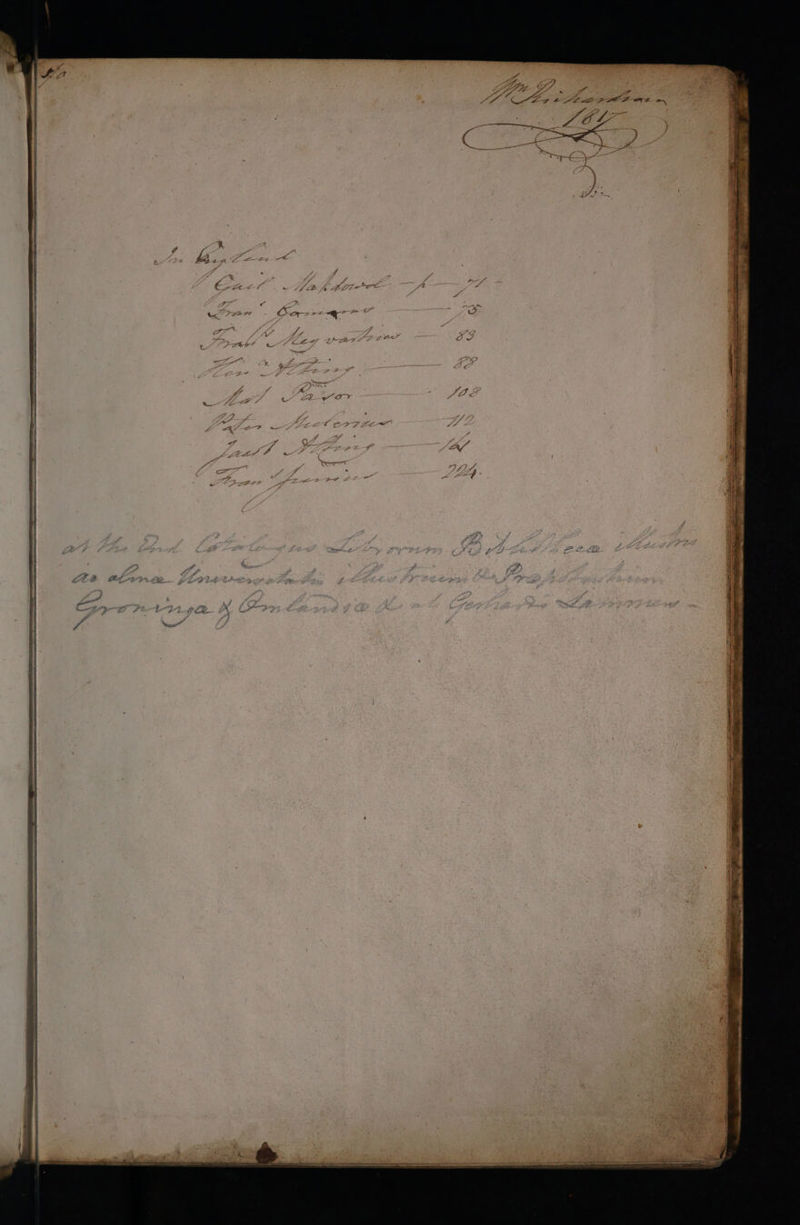 Wm Richardson
1817
In England
Guil Makdowel — p — 71 -
Fran Gomarus — 75
Fran Meyvartius — 83
Hen Alting — 88
Mat Pasor — 108
Peter Mulerius — 112
Jacob Alting — 161
Fran Junius — 224.
at the End Catalogus Librorum Bibliotheca illustris
ac alma Universitatis illustrium & Prapotentium
Groninga & Omlandia & ab Gerhardo Lammers -